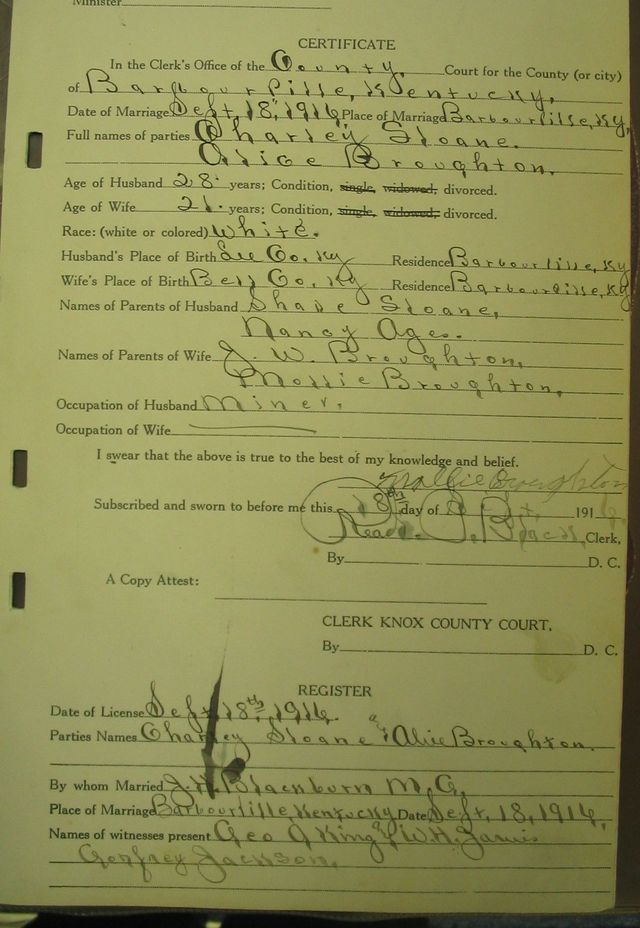 Minister
CERTIFICATE
In the Clerk's Office of the County, Court for the County (or city)
of Barbourville, Kentucky,
Date of Marriage Sept, 18, 1916, Place of Marriage Barbourville, Ky,
Full names of parties Charley Sloane.
Alice Broughton.
Age of Husband 28. years; Condition, single, widowed, divorced.
Age of Wife 21. years; Condition, single, widowed, divorced.
Race: (white or colored) White.
Husband's Place of Birth Lee Co. Ky Residence Barbourville, Ky
Wife's Place of Birth Bell Co, Ky Residence Barbourville, Ky
Names of Parents of Husband Shade Sloane,
Nancy
Names of Parents of Wife J. W. Broughton,
Mollie Broughton,
Occupation of Husband Miner.
Occupation of Wife
I swear that the above is true to the best of my knowledge and belief.
Mollie Broughton
Subscribed and sworn to before me this 18th day of 1916
Read. Black, Clerk,
By D. C.
A Copy Attest:
CLERK KNOX COUNTY COURT.
By D. C.
REGISTER
Date of License Sept, 18th, 1916.
Parties Names Charley Sloane & Alice Broughton.
By whom Married J. H. Blackburn M. G.
Place of Marriage Barbourville, Kentucky Date Sept, 18, 1916,
Names of witnesses present Geo A King & W. H. Jarvis
Jackson.